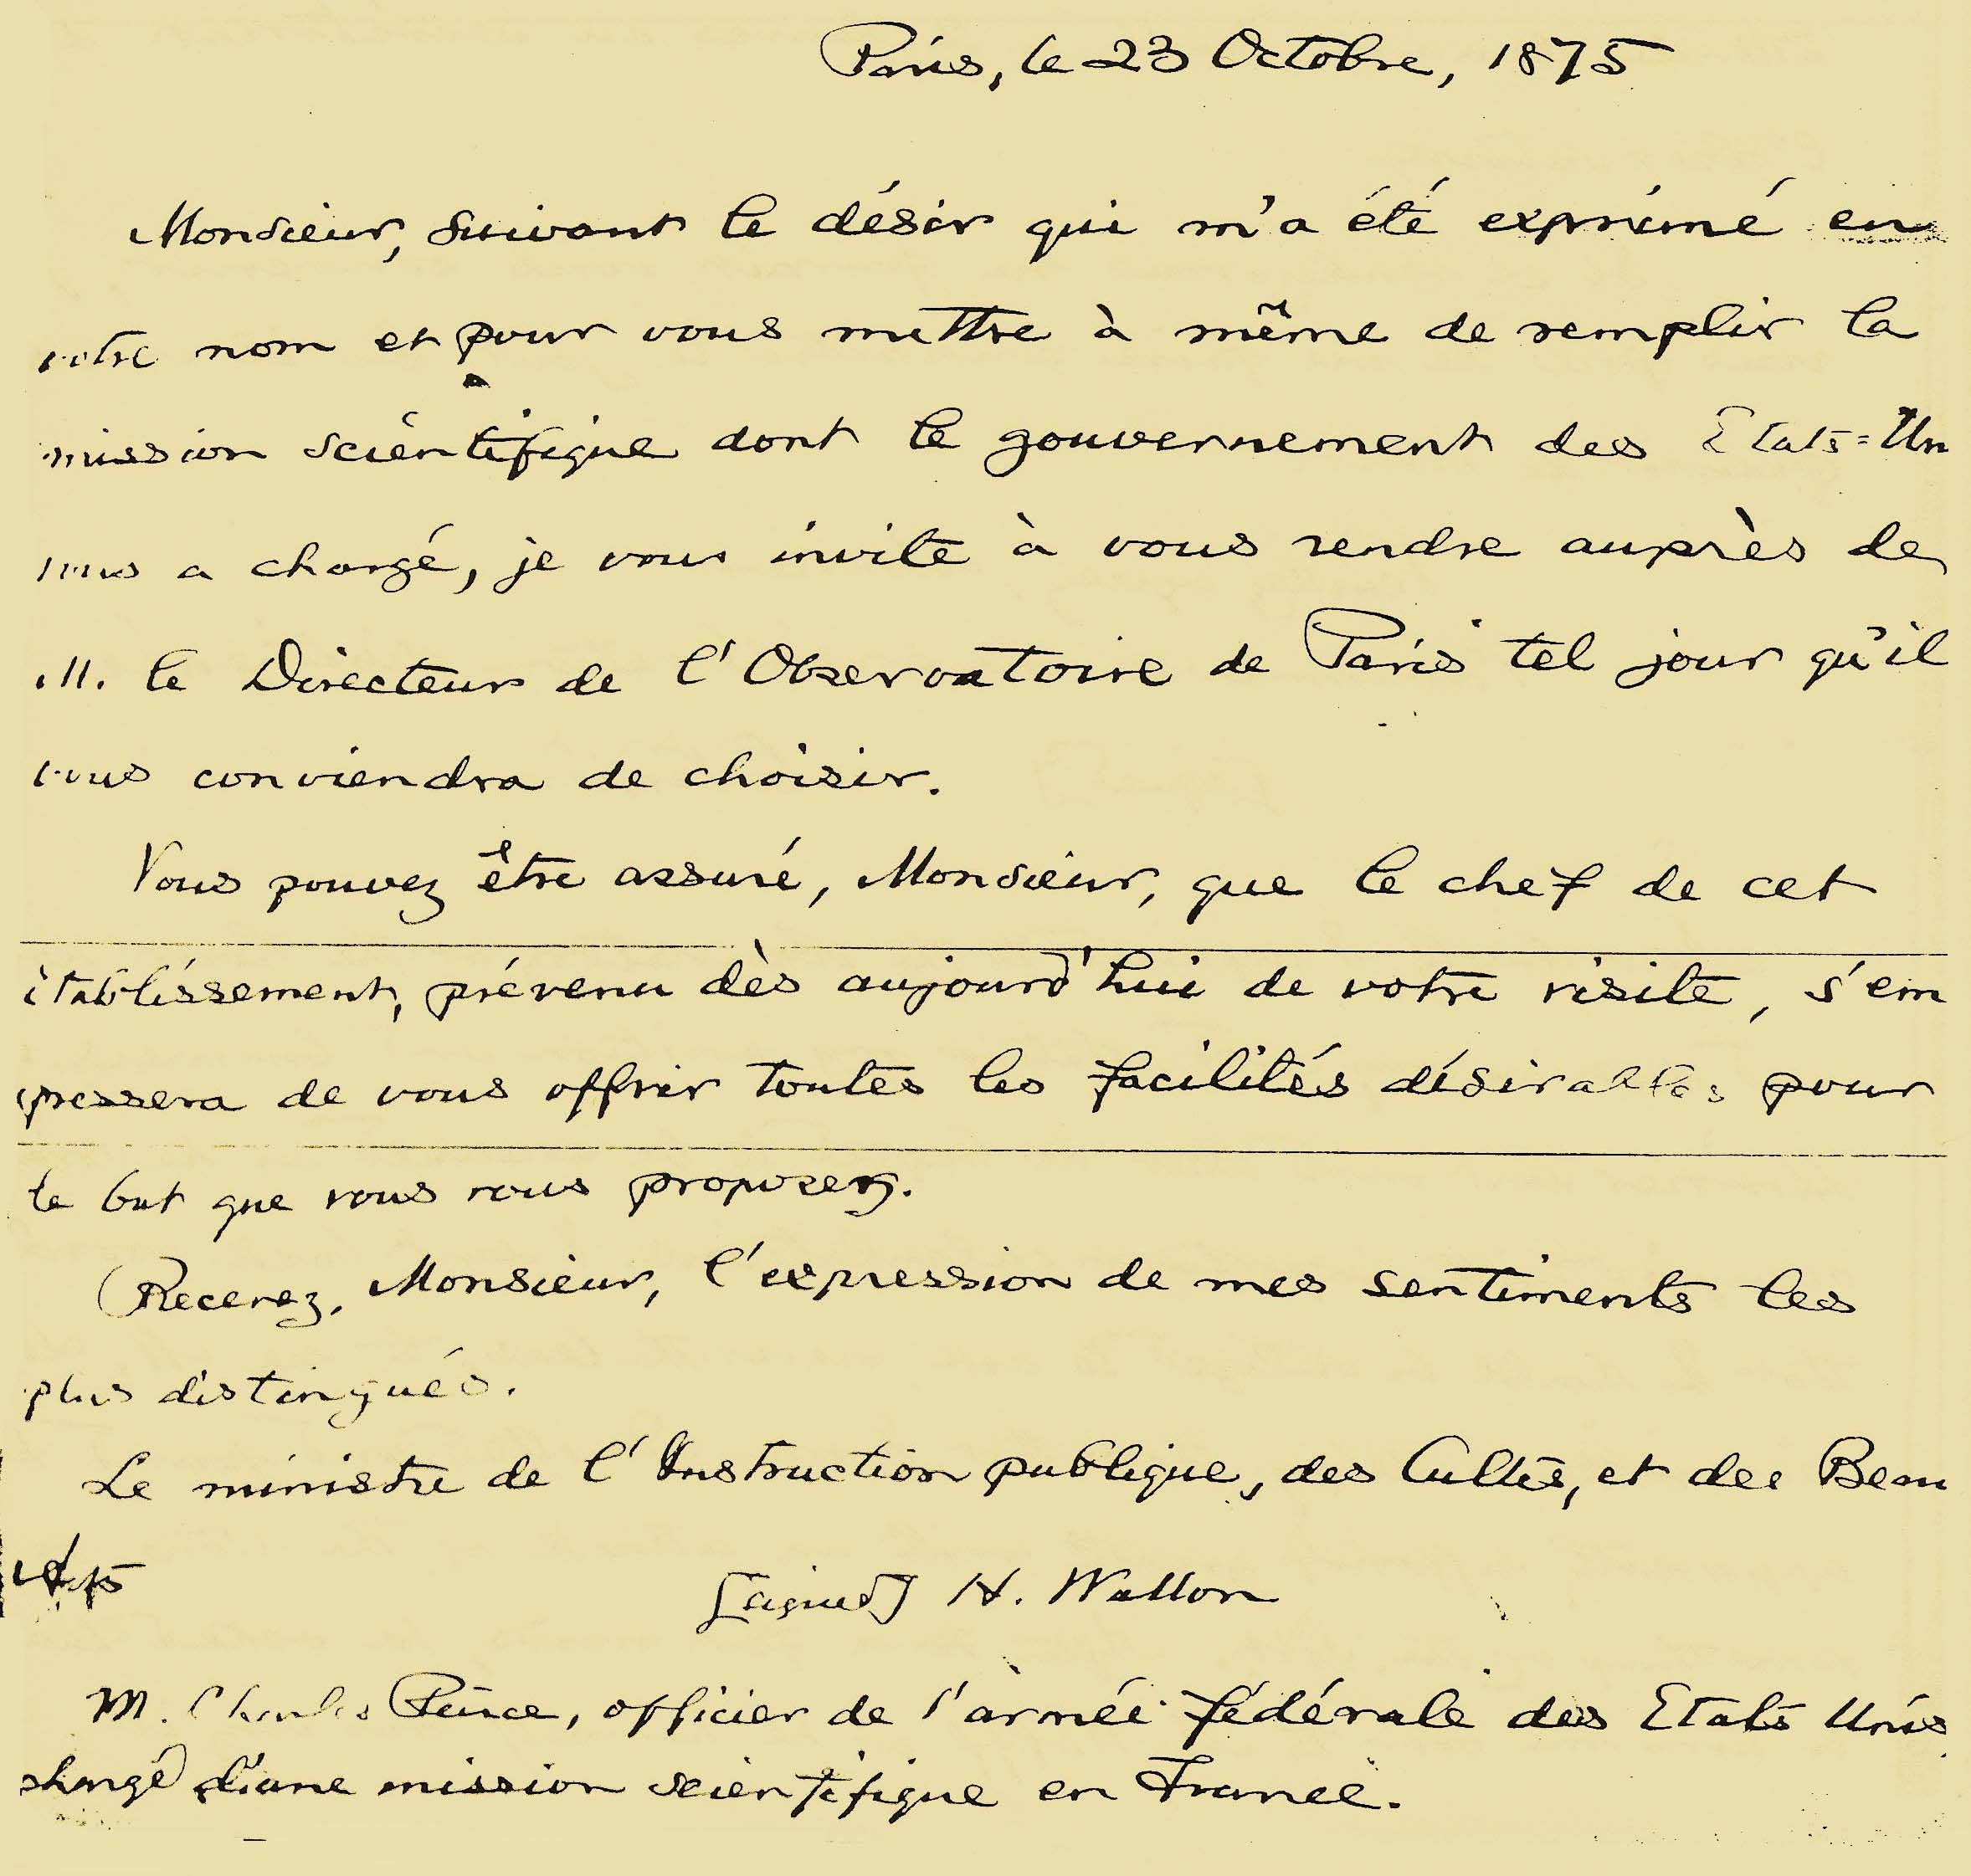 Paris, le 23 Octobre, 1875
Monsieur, suivant le désir qui m'a été exprimé en
votre nom et pour vous mettre à même de remplir la
mission scientifique dont le gouvernement des Etats=Un
vous a chargé, je vous invite à vous rendre auprès de
M. le Directeur de l'Observatoire de Paris tel jour qu'il
vous conviendra de choisir.
Vous pouvez être assuré, Monsieur, que le chef de cet
établissement, prévenu dès aujourd'hui de votre visite, s'em
pressera de vous offrir toutes les facilités désirables pour
le but que vous vous proposez.
Recevez, Monsieur, l'expression de mes sentiments les
plus distingués.
Le ministre de l'Instruction publique, des Cultes, et des Beau
[signed] H. Wallon
M. Charles Peirce, officier de l'armée fédérale des Etats Unis
chargé d'une mission scientifique en France.